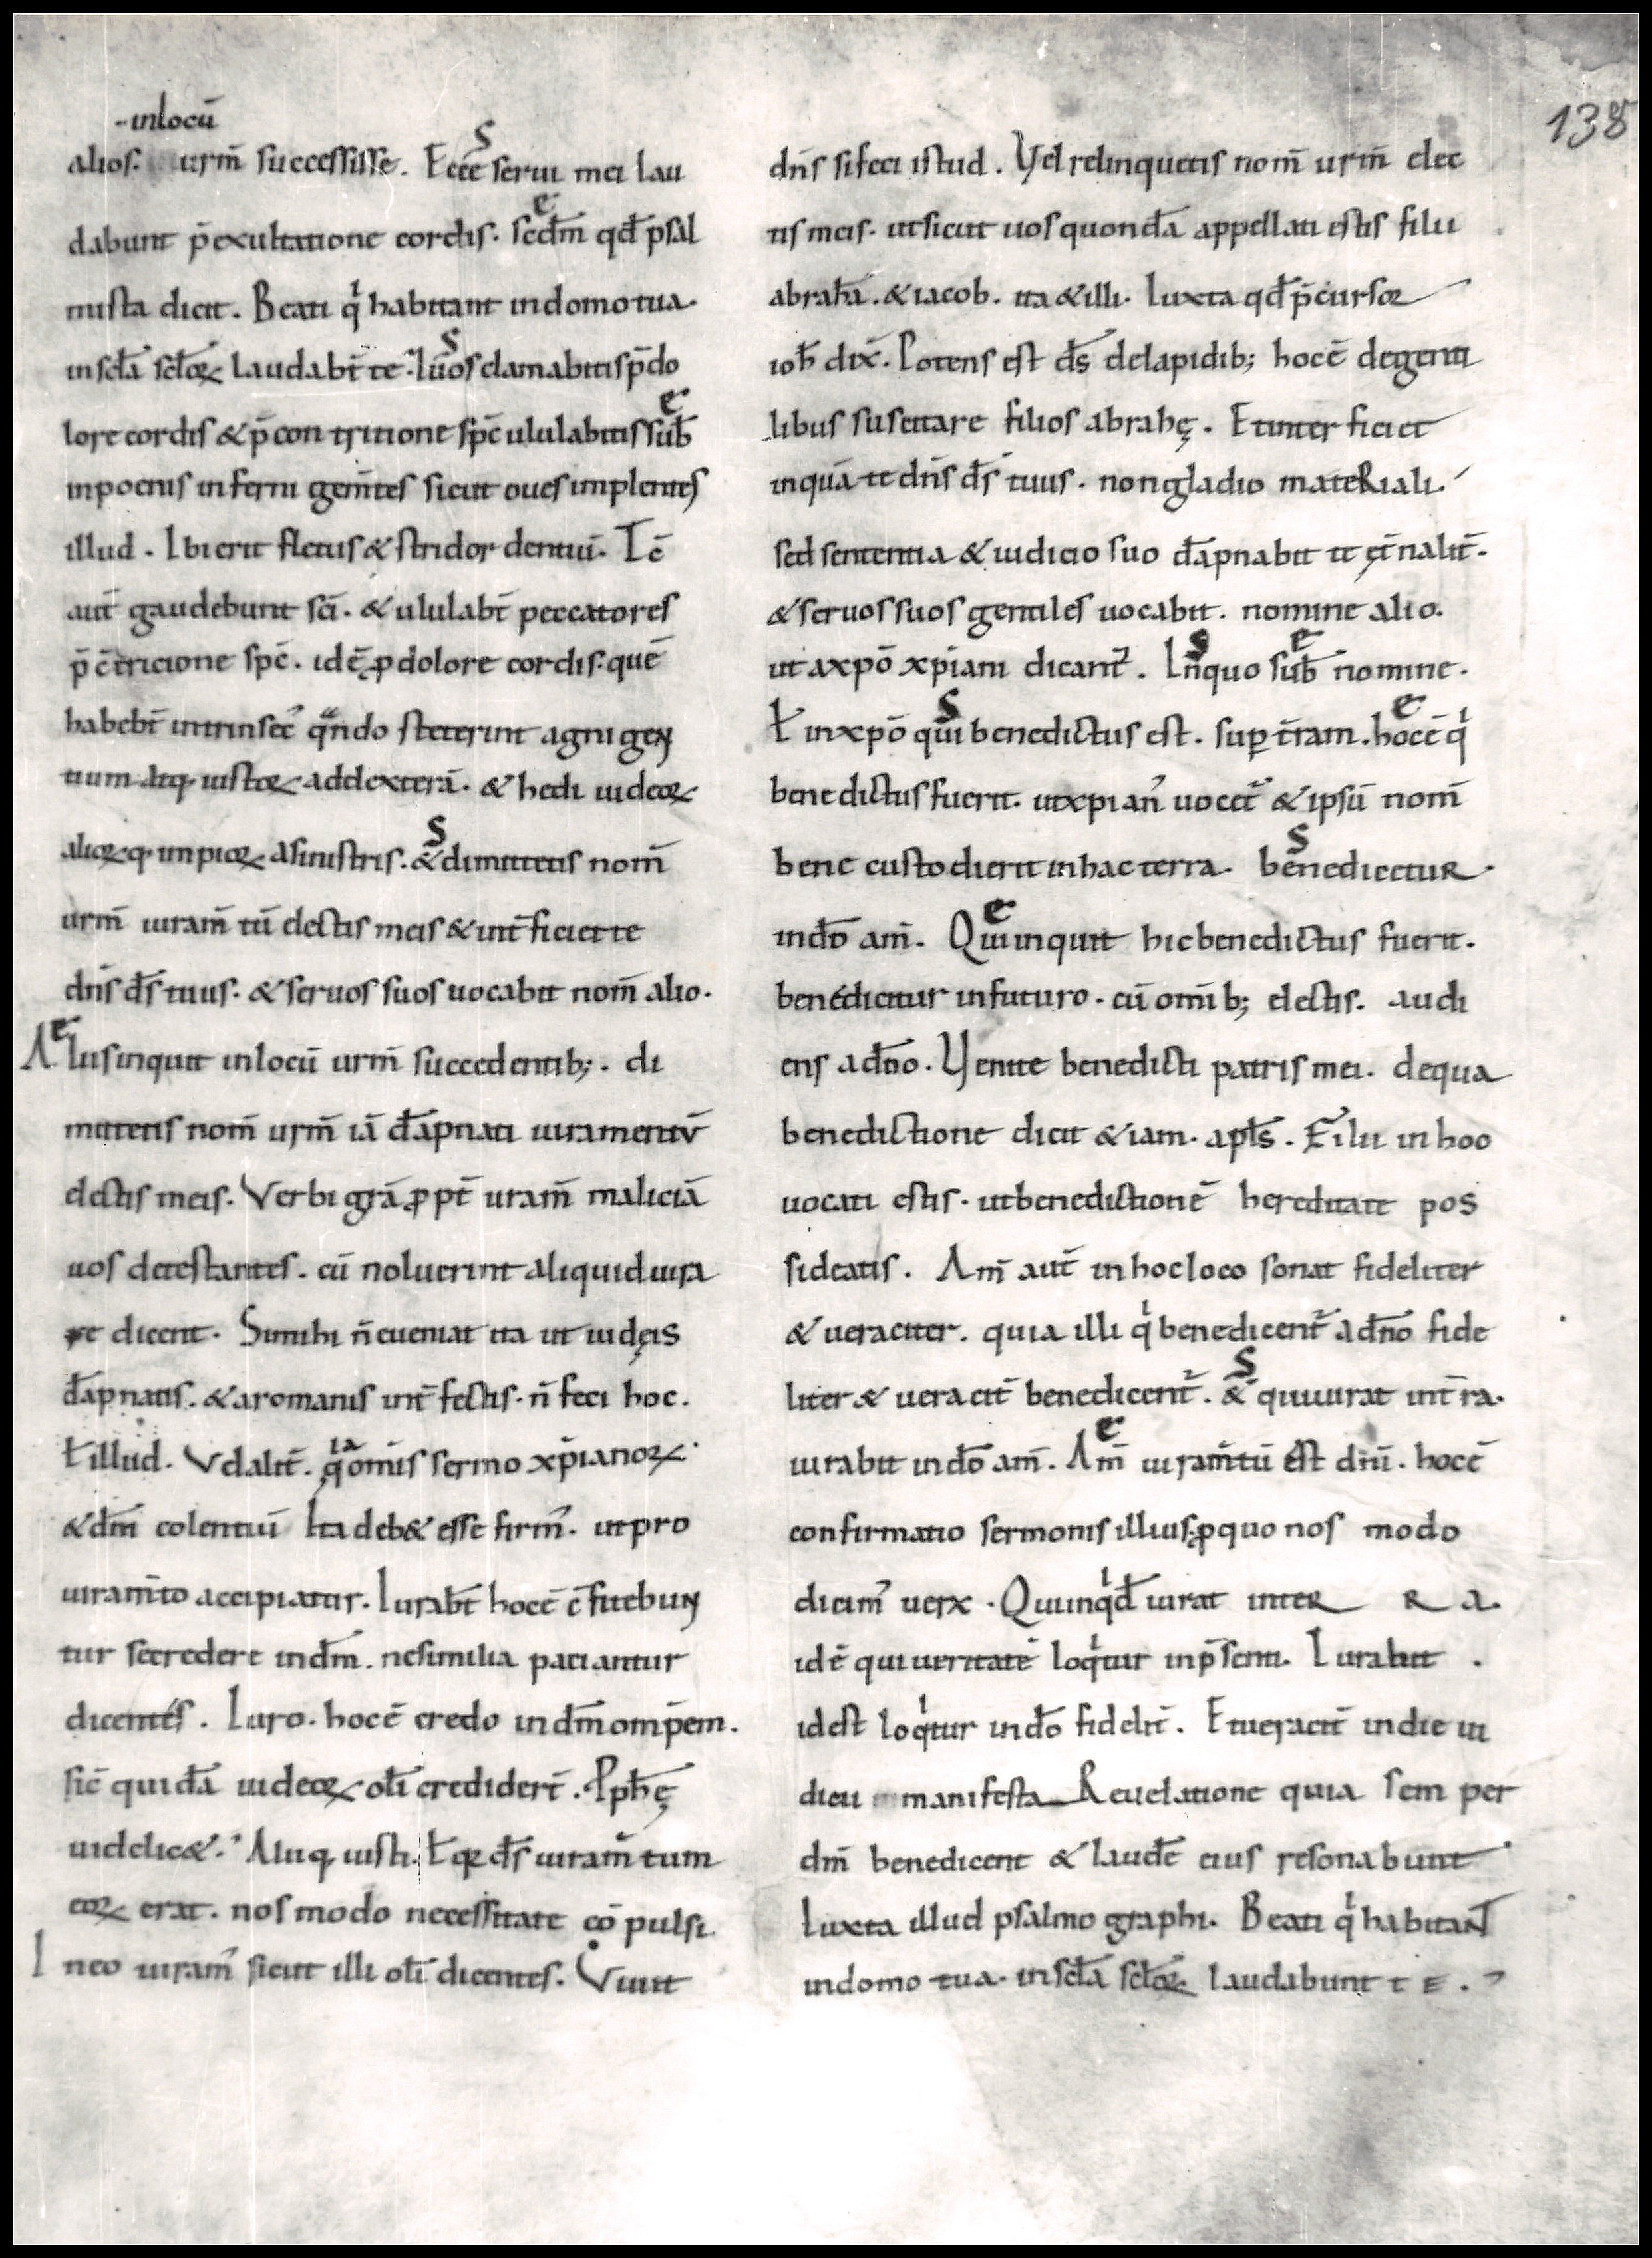 138
-inlocū
alios. urm̄ successisse. Ecce serui mei lau
dabunt p̄exultatione cordis. scd̄m qd̄ psal
mista dicit. Beati qͥ habitant indomo tua.
in scl̄a scl̄oꝝ laudabt̄ te. Iūos clamabitis p̄do
lore cordis & p̄ con tritione sp̄c ululabitis sub̄
inpoenis inferni gem̄tes sicut oues implentes
illud. Ibi erit fletus & stridor dentiū. Tē
aut̄ gaudebunt sc̄i. & ululabt̄ peccatores
p̄ c̄tricione sp̄c. idē ꝓ dolore cordis. quē
habebt̄ intrinsec᾽ qᷓndo steterint agni gen
tium atq; iustoꝝ addexterā. & hedi iudeoꝝ
alioꝝq; impioꝝ asinistris. & dimittetis nom̄
urm̄ iuram̄ tū electis meis & int̄ficiet te
dn̄s d̄s tuus. & seruos suos uocabit nom̄ alio.
Aluisinquit inlocū urm̄ succedentib;. di
mittetis nom̄ urm̄ iā dāpnati iuramentū
electis meis. Verbi grā ꝓpt̄ uram̄ maliciā
uos detestantes. cū noluerint aliquid iura
re dicent. Si mihi n̄ eueniat ita ut iudęis
dāpnatis. & aromanis int̄fectis. n̄ feci hoc.
ł illud. Vel alit̄. qͥa omīs sermo xp̄ianoꝝ
& dm̄ colentiū Ita deb& esse firm᾽. ut pro
iuram̄to accipiatur. Iurabt̄ hocē c̄fitebun
tur secredere indm̄. ne similia paciantur
dicentes. Iuro. hocē credo in dm̄ omp̄em.
sic̄ quidā iudeoꝝ oli credidert̄. Pph̄ę
uidelic&. Aliiq; iusti. ł qꝛ d̄s iuram̄tum
eoꝝ erat. nos modo necessitate cōpulsi
In eo iuram᾽ sicut illi oli dicentes. Viuit
dn̄s si feci istud. Vel relinquetis nom̄ urm̄ elec
tis meis. ut sicut uos quondā appellati estis filii
abrahā. & iacob. ita & illi. Iuxta qd̄ p̄cursor
ioh̄ dix̄. Potens est d̄s delapidib; hocē degenti
libus suscitare filios abrahę. Et inter ficiet
inquā te dn̄s d̄s tuus. non gladio mateRiali.
sed sententia & iudicio suo dāpnabit te ęt̄nalit̄.
& seruos suos gentiles uocabit. nomine alio.
ut axpō xp̄iani dicant᾽. In̄quo sub̄ nomine.
ł inxpō qui benedictus est. sup̱ t̄ram. hocē qͥ
benedictus fuerit. utxpian᾽ uocet᾽ & ipsū nom̄
bene custodierit inhac terra. benedicetur
indō am̄. Qui inquit hic benedictus fuerit.
benedicitur infuturo. cū omīb; electis. audi
ens adn̄o. Venite benedicti patris mei. dequa
benedictione dicit & iam. apl̄s. Filii in hoc
uocati estis. utbenedictionē hereditate pos
sideatis. Am̄ aut̄ in hoc loco sonat fideliter
& ueraciter. quia illi qͥ benedicent᾽ adn̄o fide
liter & ueracit̄ benedicent᾽. & qui iurat int̄ra.
iurabit indō am̄. Am̄ iuram̄tū est dnī. hocē
confirmatio sermonis illius. ꝓquo nos modo
dicim᾽ uerx. Qui inqͥd̄ iurat inteR R a.
idē qui ueritatē loqͥtur in p̄senti. Iurabit.
idest loqͥtur indō fidelit̄. Et ueracit̄ indie iu
dicii manifesta Reuelatione quia sem per
dm̄ benedicent & laudē eius resonabunt
Iuxta illud psalmo graphi. Beati qͥ habitant
indomo tua. inscl̄a scl̄oꝝ laudabunt t e.